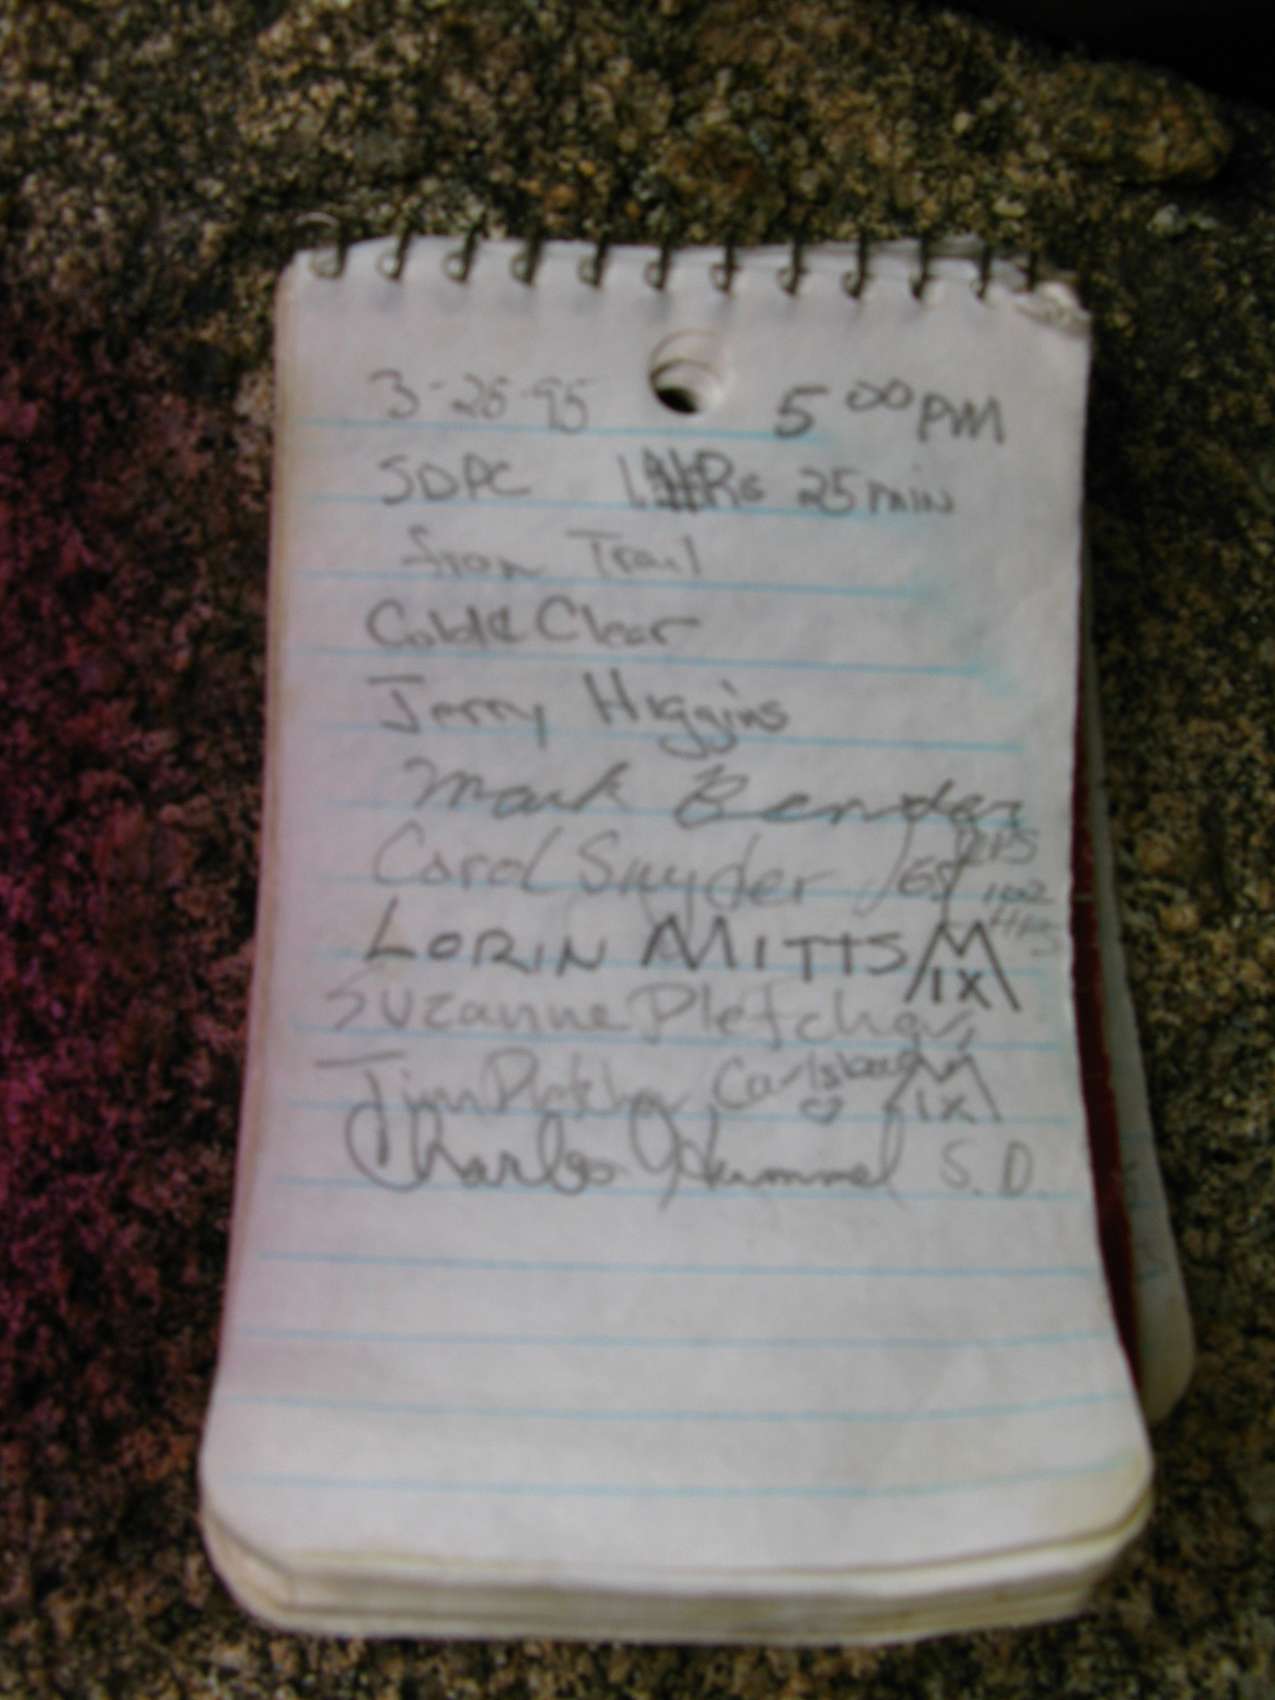 3-26-95 5 00 PM
SDPC 1 HRs 25 min
from Trail
Cold & Clear
Jerry Higgins
Mark Bender
Carol Snyder
LORIN MITTS M IX
Suzanne Pletcher
Jim Pletcher Carlsbad M IX
Charles Hummel S. D.